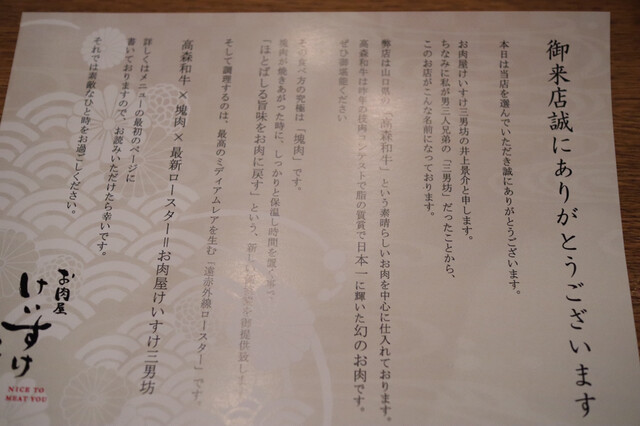 御来店誠にありがとうございます
本日は当店を選んでいただき誠にありがとうございます。
お肉屋けいすけ三男坊の井上景介と申します。
ちなみに私が男三人兄弟の「三男坊」だったことから、
このお店がこんな名前になっております。
弊店は山口県の「高森和牛」という素晴らしいお肉を中心に仕入れております。
高森和牛は昨年の枝肉コンテストで脂の質賞で日本一に輝いた幻のお肉です。
ぜひ御堪能ください
その食べ方の究極は「塊肉」です。
塊肉が焼きあがった時に、しっかりと保温し時間を置く事で
「ほとばしる旨味をお肉に戻す」という、新しい
提供致します
そして調理するのは、最高のミディアムレアを生む「遠赤外線ロースター」です。
高森和牛×塊肉×最新ロースター＝お肉屋けいすけ三男坊
詳しくはメニューの最初のページに
書いておりますので、お読みいただけたら幸いです。
それでは素敵なひと時をお過ごしください。
お肉屋
けいすけ
NICE TO
MEAT YOU